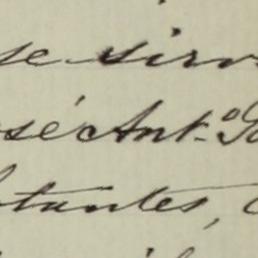 se sirv
osé Ant.º G
tantes,